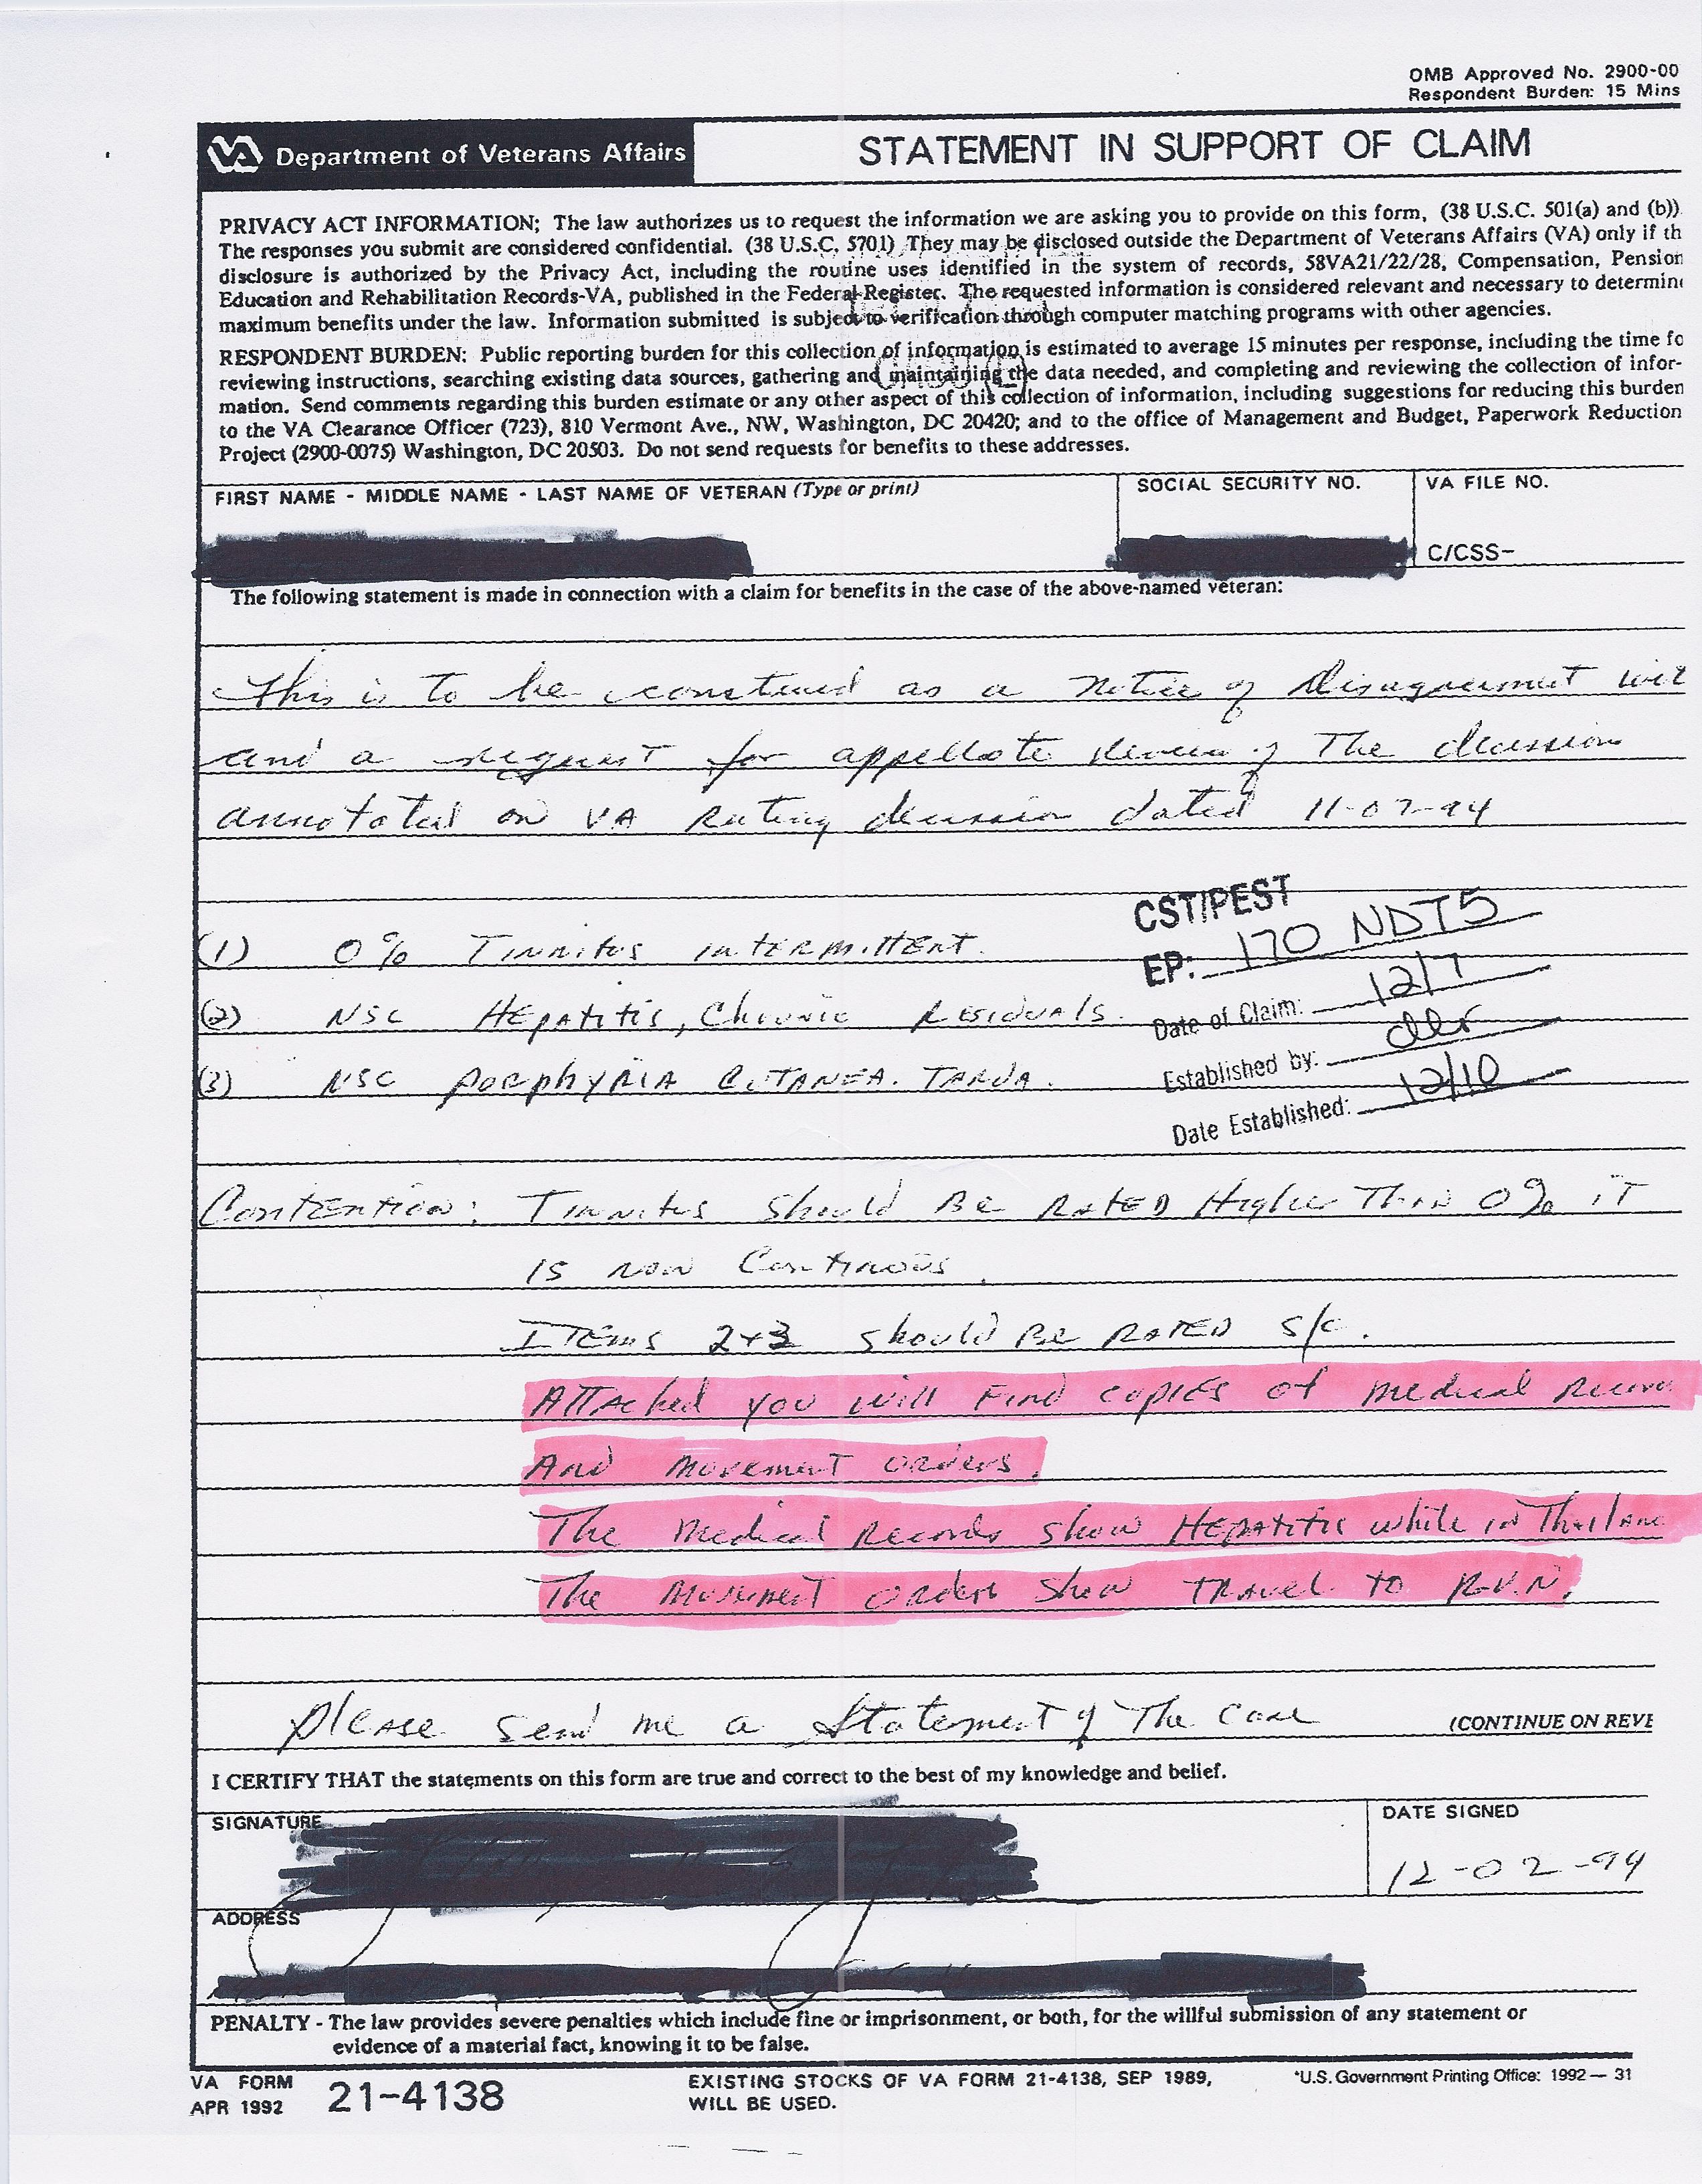 OMB Approved No. 2900-00
Respondent Burden: 15 Mins
VA Department of Veterans Affairs
STATEMENT IN SUPPORT OF CLAIM
PRIVACY ACT INFORMATION; The law authorizes us to request the information we are asking you to provide on this form, (38 U.S.C. 501(a) and (b))
The responses you submit are considered confidential. (38 U.S.C. 5701) They may be disclosed outside the Department of Veterans Affairs (VA) only if th
disclosure is authorized by the Privacy Act, including the routine uses identified in the system of records, 58VA21/22/28, Compensation, Pension
Education and Rehabilitation Records-VA, published in the Federal Register. The requested information is considered relevant and necessary to determine
maximum benefits under the law. Information submitted is subject to verification through computer matching programs with other agencies.
RESPONDENT BURDEN: Public reporting burden for this collection of information is estimated to average 15 minutes per response, including the time fo
reviewing instructions, searching existing data sources, gathering and maintaining the data needed, and completing and reviewing the collection of infor-
mation. Send comments regarding this burden estimate or any other aspect of this collection of information, including suggestions for reducing this burden
to the VA Clearance Officer (723), 810 Vermont Ave., NW, Washington, DC 20420; and to the office of Management and Budget, Paperwork Reduction
Project (2900-0075) Washington, DC 20503. Do not send requests for benefits to these addresses.
FIRST NAME - MIDDLE NAME - LAST NAME OF VETERAN (Type or print)
SOCIAL SECURITY NO.
VA FILE NO.
C/CSS-
The following statement is made in connection with a claim for benefits in the case of the above-named veteran:
This is to be construed as a notice of Disagreement wit
and a request for appellate review of The decission
annotated on VA Rating decision dated 11-07-94
CST/PEST
EP: 170 NDT5
(1) 0% Tinnitus intermittent.
Date of Claim: 12/7
(2) NSC Hepatitis, Chronic Residuals.
Established by:
(3) NSC Porphyria Cutanea. Tarda.
Date Established: 12/10
Contention: Tinnitus should Be Rated Higher Than 0% iT
is now Continous.
Items 2+3 should Be RATED s/c.
Attached you will Find copies of medical Record
And movement orders.
The medical Records show Hepatitis while in Thailand
The Movement orders show TRAVEL to R.V.N.
Please send me a Statement of The Case
(CONTINUE ON REVE
I CERTIFY THAT the statements on this form are true and correct to the best of my knowledge and belief.
SIGNATURE
DATE SIGNED
12-02-94
ADDRESS
PENALTY - The law provides severe penalties which include fine or imprisonment, or both, for the willful submission of any statement or
evidence of a material fact, knowing it to be false.
VA FORM
APR 1992 21-4138
EXISTING STOCKS OF VA FORM 21-4138, SEP 1989,
WILL BE USED.
*U.S. Government Printing Office: 1992 — 31